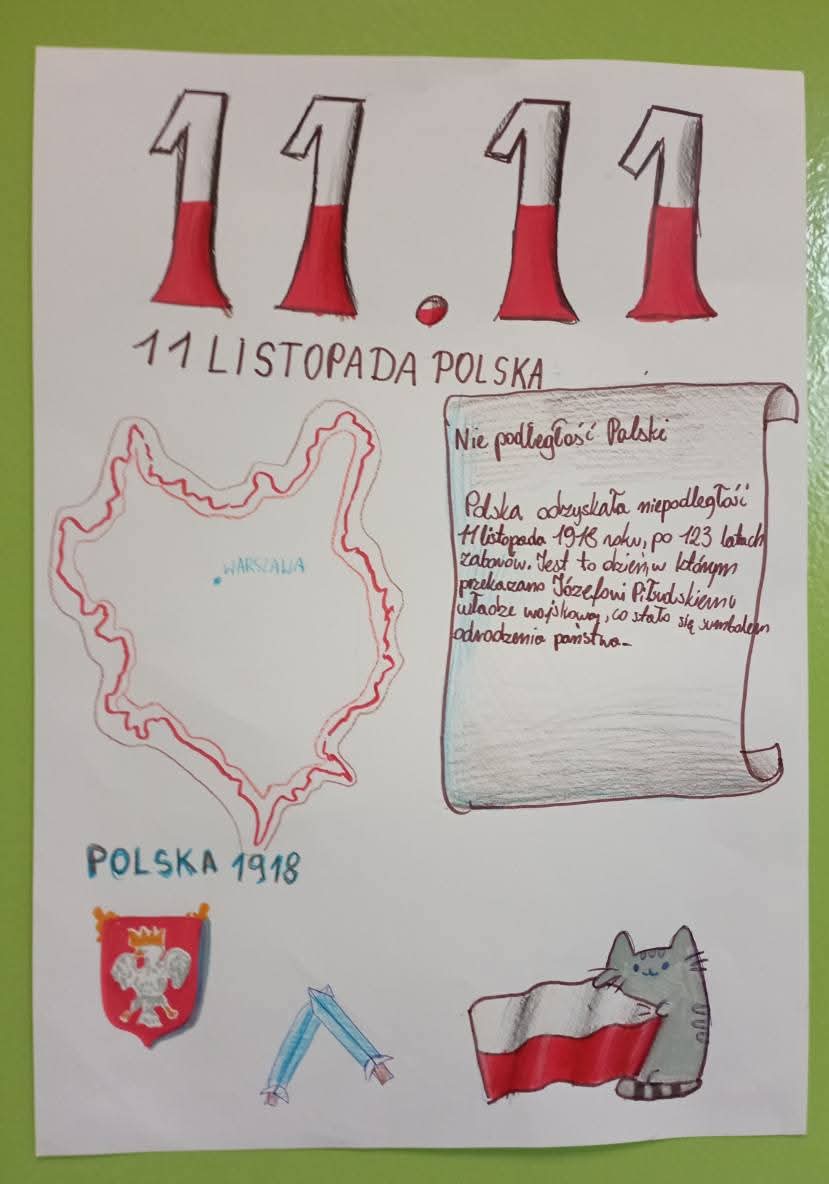 11.11
11 LISTOPADA POLSKA
Nie podległość Polski
Polska odzyskała niepodległość
11 listopada 1918 roku, po 123 latach
zaborów. Jest to dzień, w którym
przekazano Józefowi Piłsudskiemu
władze wojskową, co stało się sumbolem
odrodzenia państwa.
WARSZAWA
POLSKA 1918